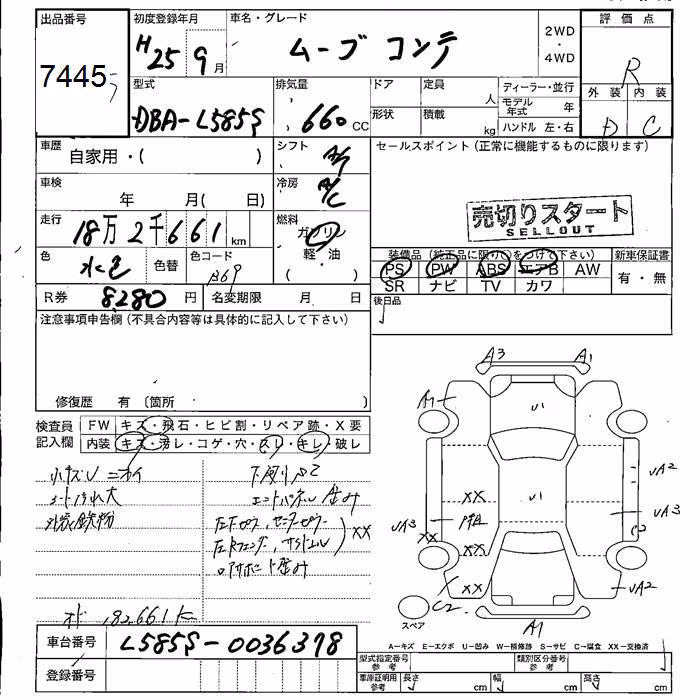 出品番号
7445
初度登録年月
H25 9月
車名・グレード
ムーブ コンテ
2WD
・
4WD
評価点
R
外装 内装
D C
型式
DBA-L585S
排気量
660 CC
ドア
定員
人
形状
積載
kg
ディーラー・並行
モデル年式 年
ハンドル 左・右
車歴
自家用・( )
シフト
冷房
A/C
セールスポイント(正常に機能するものに限ります)
車検
年 月( 日)
売切りスタート
SELLOUT
走行
18万2千661km
燃料
ガソリン
軽・油
( )
色
水色
色替
色コード
B69
装備品(純正品に限り○をつけて下さい)
新車保証書
PS PW ABS エアB AW
SR ナビ TV カワ
有・無
R券
8280円
名変期限 月 日
後日品
注意事項申告欄(不具合内容等は具体的に記入して下さい)
修復歴 有〔箇所 〕
検査員記入欄
FW キズ・飛石・ヒビ割・リペア跡・X要
内装 キズ・汚レ・コゲ・穴・スレ・キレ・破レ
小キズU ニオイ
シートよごれ大
外装鉄粉
下廻りサビ
XX
オド 182661K
A3
A1
A1
UA2
UA3
UA3
XX
XX
XX
XX
C2
UA2
C2
スペア
A1
A-キズ E-エクボ U-凹み W-補修跡 S-サビ C-腐食 XX-交換済
車台番号
L585S-0036378
登録番号
型式指定番号 参考
類別区分番号 参考
車庫証明用 参考
長さ cm
幅 cm
高さ cm